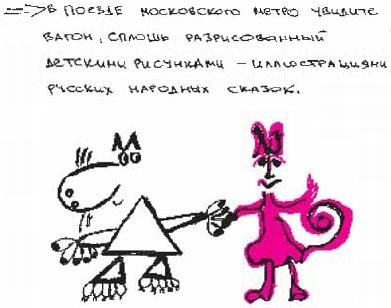 В ПОЕЗДЕ МОСКОВСКОГО МЕТРО УВИДИТЕ
ВАГОН, СПЛОШЬ РАЗРИСОВАННЫЙ
ДЕТСКИМИ РИСУНКАМИ – ИЛЛЮСТРАЦИЯМИ
РУССКИХ НАРОДНЫХ СКАЗОК.